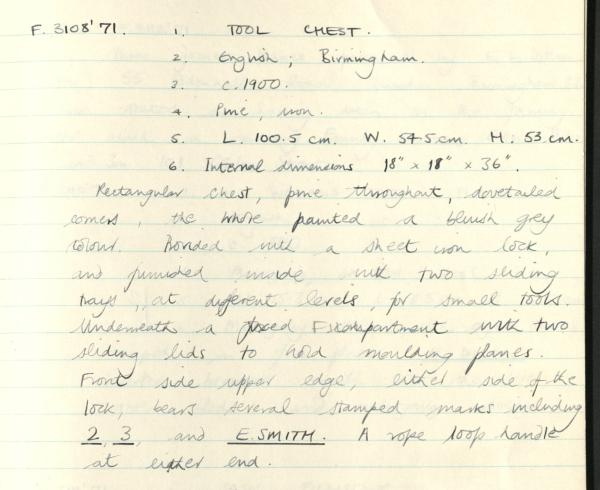 F. 3108'71. 1. TOOL CHEST.
2. English; Birmingham.
3. c. 1900.
4. Pine, iron.
5. L. 100.5 cm. W. 54.5 cm. H. 53 cm.
6. Internal dimensions 18" x 18" x 36".
Rectangular chest, pine throughout, dovetailed
corners, the whole painted a bluish grey
colour. Provided with a sheet iron lock,
and furnished inside with two sliding
trays, at different levels, for small tools.
Underneath a fixed compartment with two
sliding lids to hold moulding planes.
Front side upper edge, either side of the
lock, bears several stamped marks including
2, 3, and E. SMITH. A rope loop handle
at either end.